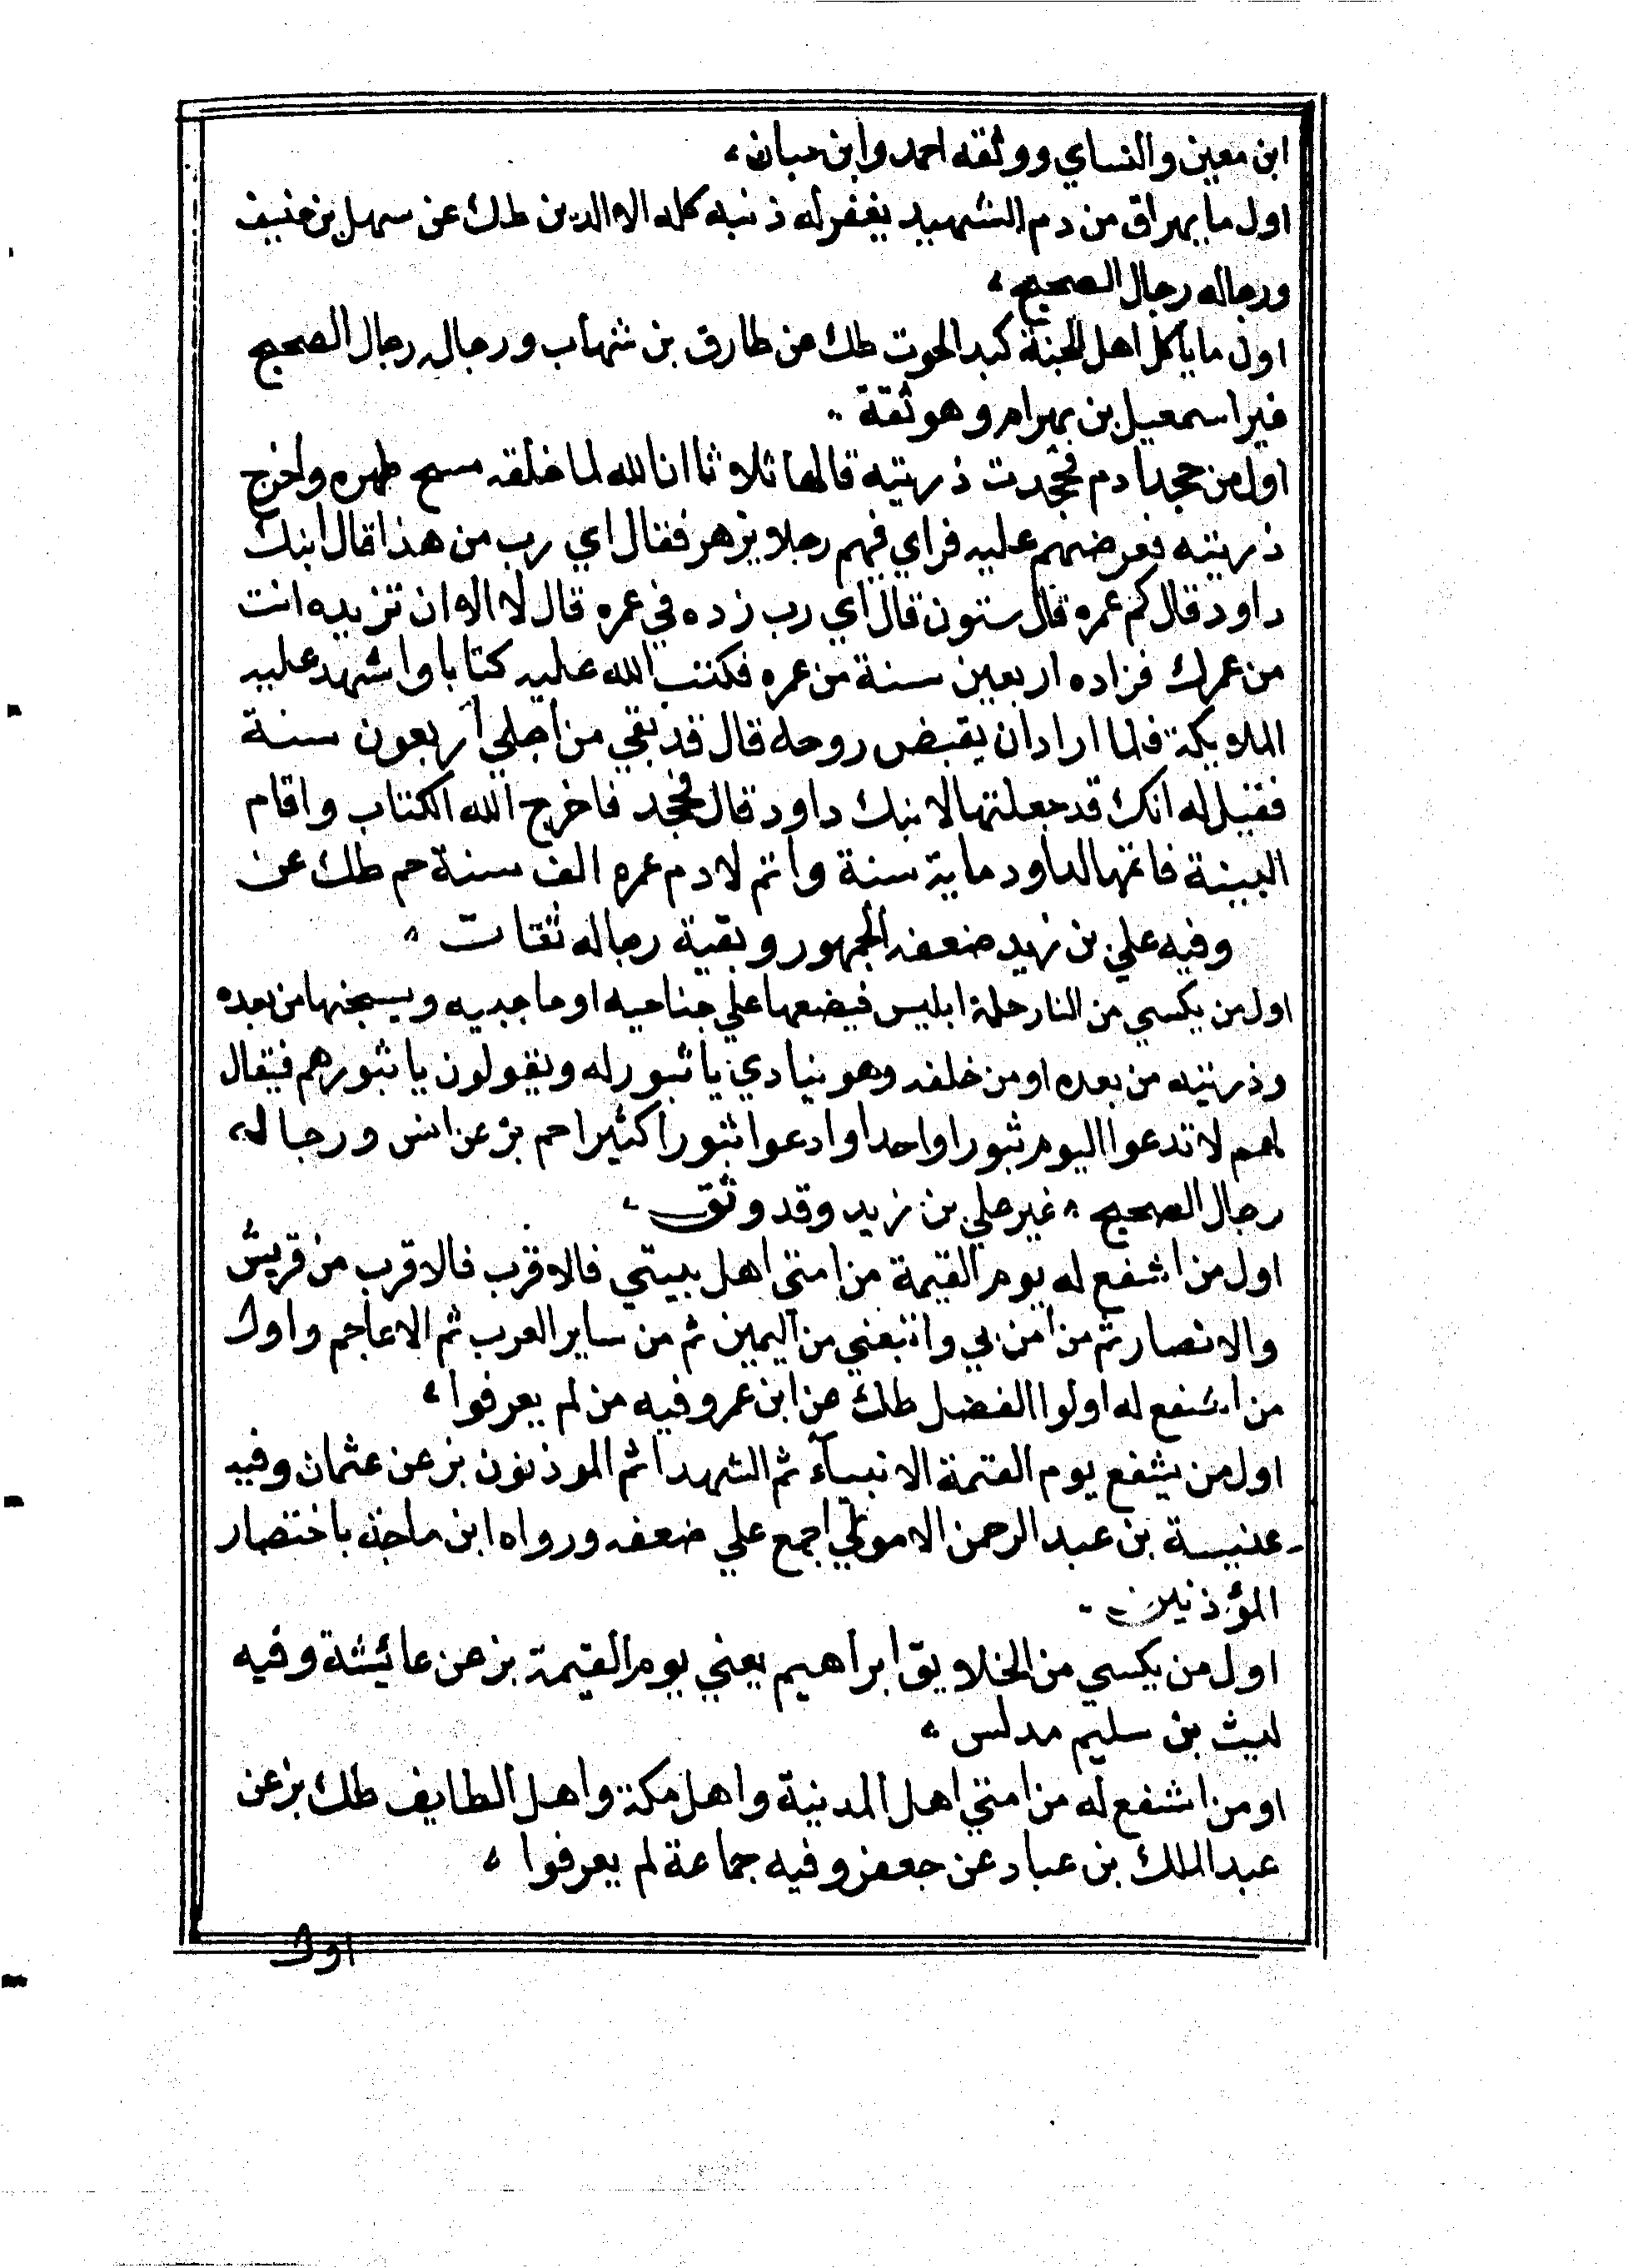 ابن معين والنساي ووثقه احمد وابن حبان،
اول ما يهراق من دم الشهيد يغفر له ذنبه كله الا الدين طك عن سهل بن حنيف
ورجاله رجال الصحيح،
اول ما يأكل اهل الجنة كبد الحوت طك عن طارق بن شهاب ورجاله رجال الصحيح
غير اسمعيل بن بهرام وهو ثقة ..
اول من جحد ادم فجحدت ذريته قالها ثلاثا ان الله لما خلقه مسح ظهره واخرج
ذريته فعرضهم عليه فراي فيهم رجلا يزهر فقال اي رب من هذا قال ابنك
داود قال كم عمره قال ستون قال اي رب زده في عمره قال لا الا ان تزيده انت
من عمرك فزاده اربعين سنة من عمره فكتب الله عليه كتابا واشهد عليه
الملايكة فلما اراد ان يقبض روحه قال قد بقي من اجلي اربعون سنة
فقيل له انك قد جعلتها لابنك داود قال فجحد فاخرج الله الكتاب واقام
البينة فاتمها لداود ماية سنة واتم لادم عمره الف سنة حم طك عن
وفيه علي بن زيد ضعفه الجمهور وبقية رجاله ثقات ،
اول من يكسي من النار حلة ابليس فيضعها علي جناحيه او حاجبيه ويسحبها من بعده
وذريته من بعده او من خلفه وهو ينادي يا ثبور له ويقولون يا ثبورهم فيقال
لهم لا تدعوا اليوم ثبورا واحدا وادعوا ثبورا كثيرا حم بز عن انس ورجاله
رجال الصحيح ، غير علي بن زيد وقد وثق ،
اول من اشفع له يوم القيمة من امتي اهل بيتي فالاقرب فالاقرب من قريش
والانصار ثم من امن بي واتبعني من اليمين ثم من ساير العرب ثم الاعاجم واول
من اشفع له اولوا الفضل طك عن ابن عمر وفيه من لم يعرفوا،
اول من يشفع يوم القيمة الانبيآء ثم الشهدا ثم الموذنون بز عن عثمان وفيه
عنبسة بن عبد الرحمن الاموي اجمع علي ضعفه ورواه ابن ماجة باختصار
المؤذنين .
اول من يكسي من الخلايق ابراهيم يعني يوم القيمة بز عن عائيشة وفيه
ليث بن سليم مدلس ،
او من اشفع له من امتي اهل المدينة واهل مكة واهل الطايف طك بز عن
عبد الملك بن عباد عن جعفر وفيه جماعة لم يعرفوا ،
اول